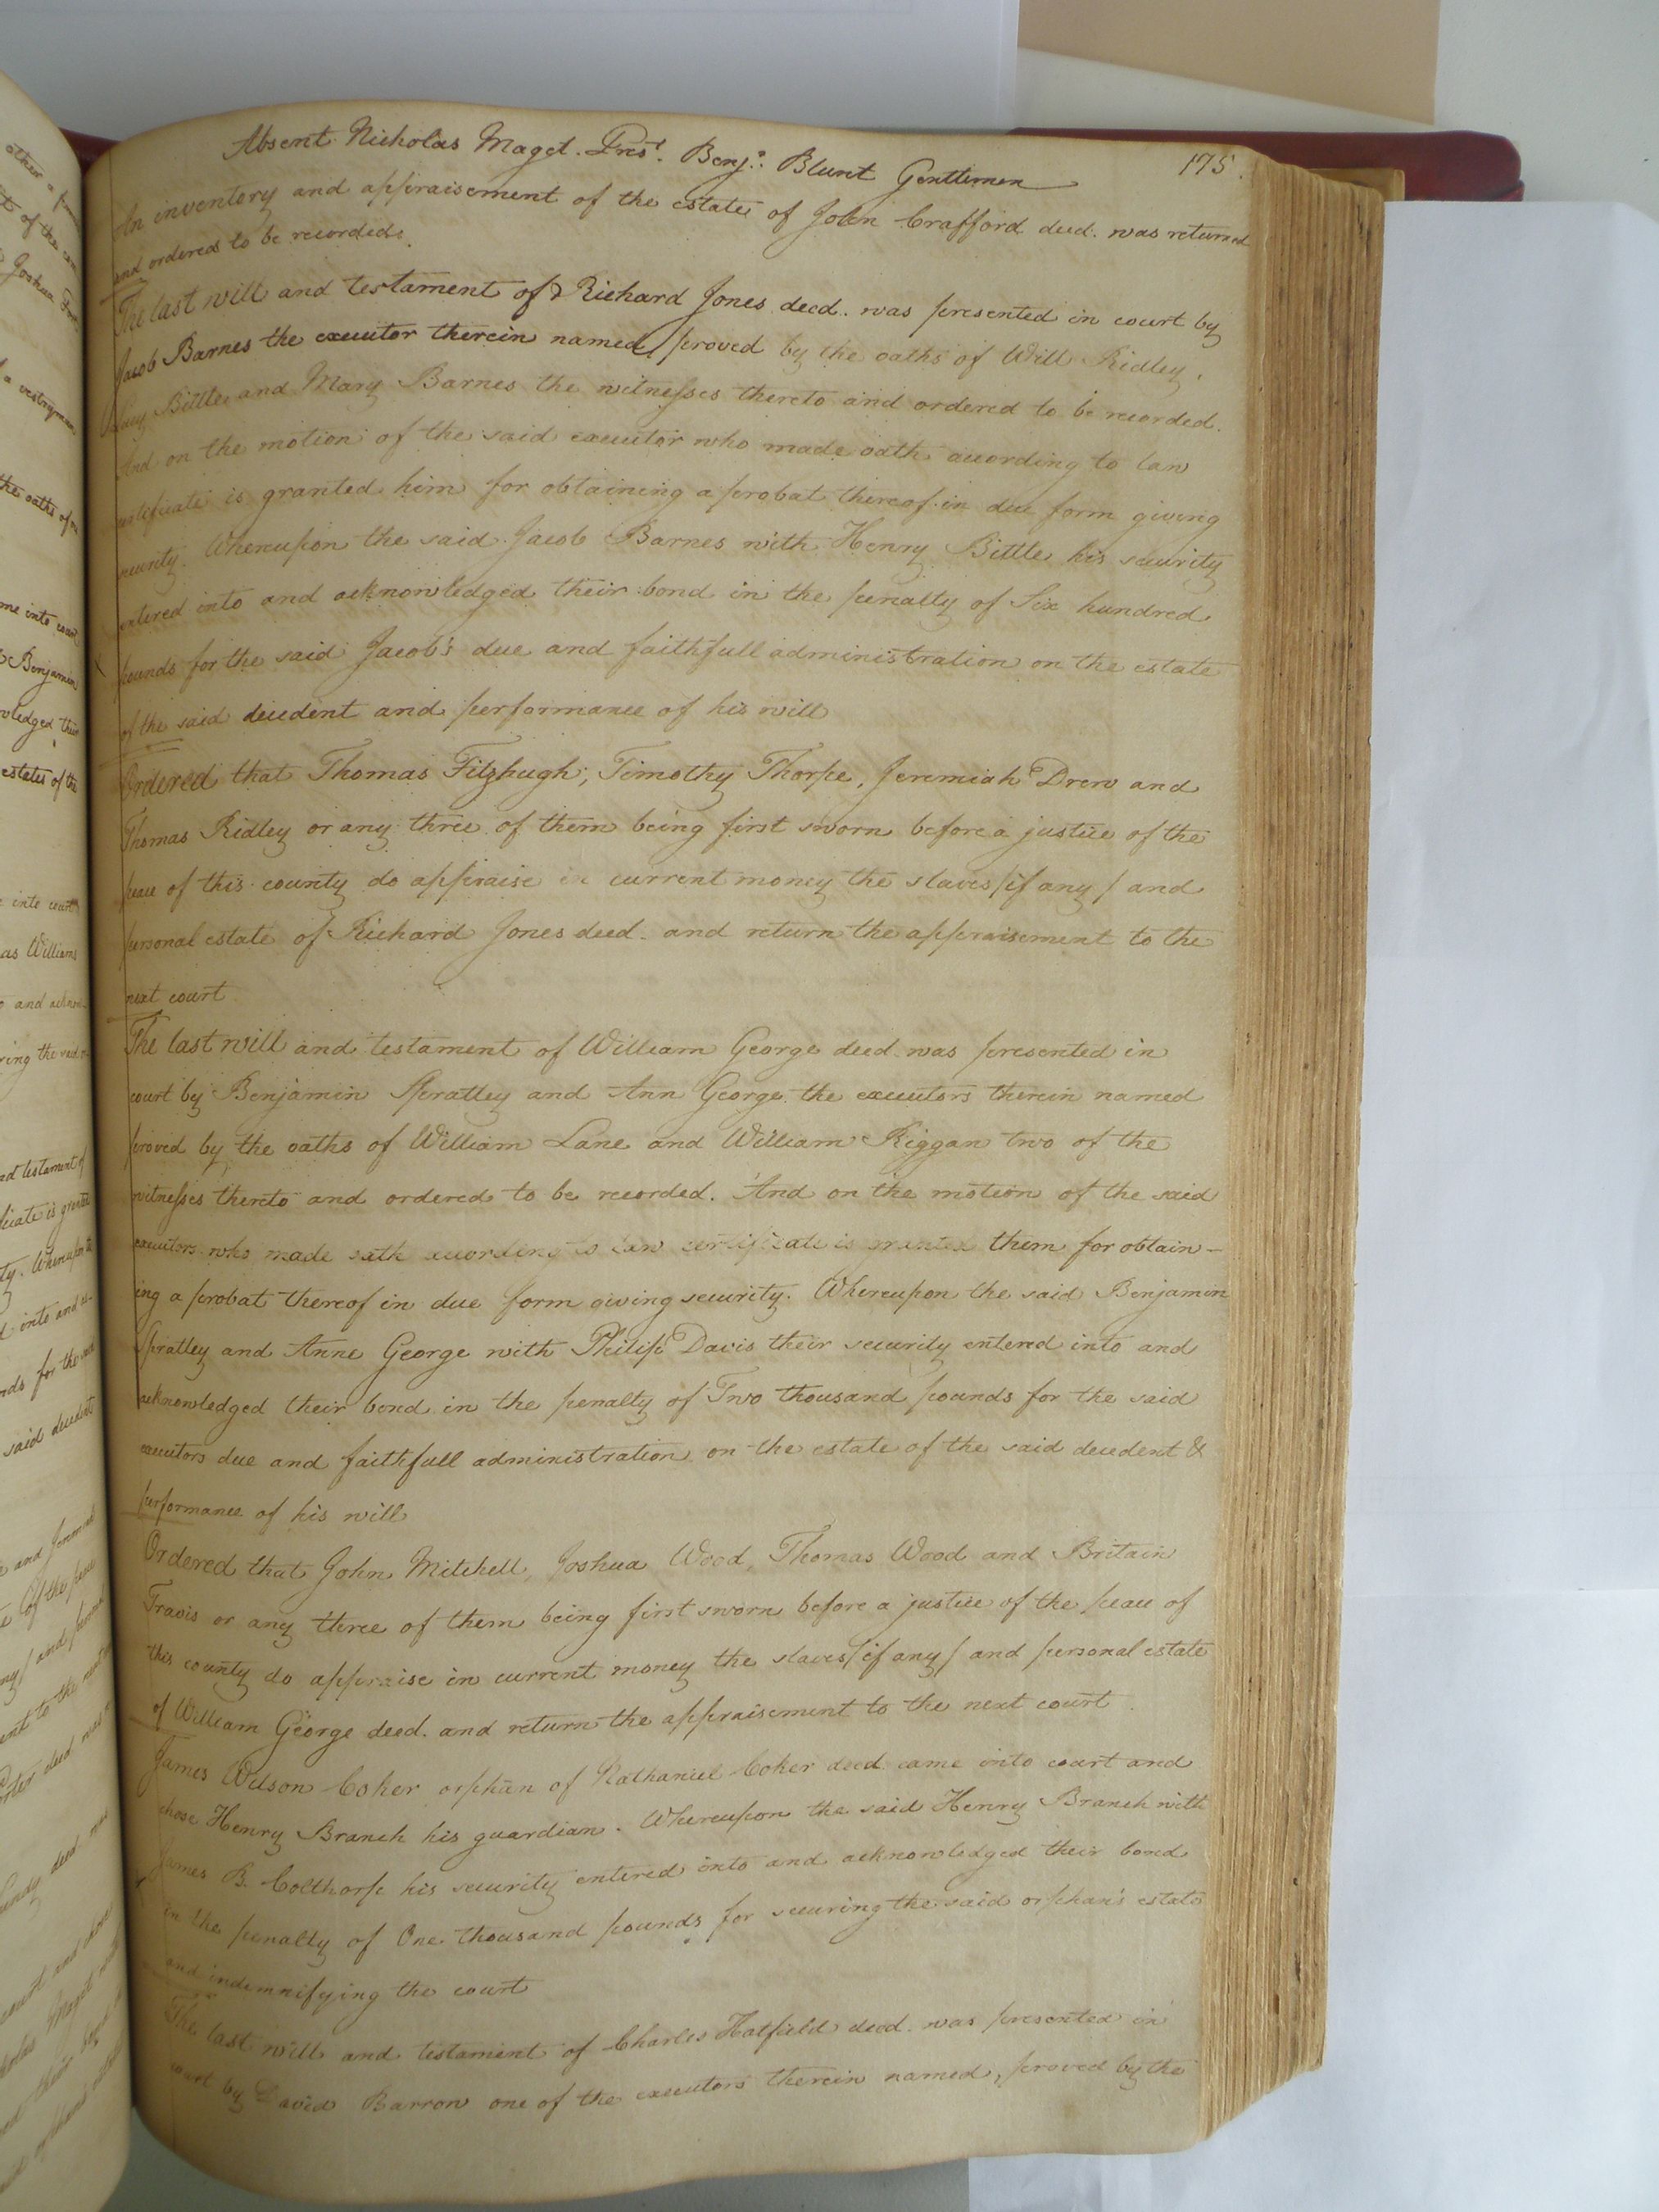 175.
Absent Nicholas Maget. Prest. Benj.n Blunt Gentlemen
An inventory and appraisement of the estate of John Crafford decd. was returned
and ordered to be recorded.
The last will and testament of Richard Jones decd. was presented in court by
Jacob Barnes the executor therein named, proved by the oaths of Will Ridley,
Bittle and Mary Barnes the witnesses thereto and ordered to be recorded.
And on the motion of the said executor who made oath according to law
certificate is granted him for obtaining a probat thereof in due form giving
security. Whereupon the said Jacob Barnes with Henry Bittle his security
entered into and acknowledged their bond in the penalty of Six hundred
pounds for the said Jacob's due and faithfull administration on the estate
of the said decedent and performance of his will
Ordered that Thomas Fitzhugh, Timothy Thorpe, Jeremiah Drew and
Thomas Ridley or any three of them being first sworn before a justice of the
peace of this county do appraise in current money the slaves /if any/ and
personal estate of Richard Jones decd. and return the appraisement to the
next court
The last will and testament of William George decd. was presented in
court by Benjamin Spratley and Ann George the executors therein named
proved by the oaths of William Lane and William Riggan two of the
witnesses thereto and ordered to be recorded. And on the motion of the said
executors who made oath according to law certificate is granted them for obtain-
ing a probat thereof in due form giving security. Whereupon the said Benjamin
Spratley and Anne George with Philip Davis their security entered into and
acknowledged their bond in the penalty of Two thousand pounds for the said
executors due and faithfull administration on the estate of the said decedent &
performance of his will
Ordered that John Mitchell, Joshua Wood, Thomas Wood and Britain
Travis or any three of them being first sworn before a justice of the peace of
this county do appraise in current money the slaves /if any/ and personal estate
of William George decd. and return the appraisement to the next court
James Wilson Coker orphan of Nathaniel Coker decd. came into court and
chose Henry Branch his guardian. Whereupon the said Henry Branch with
James B. Colthorp his security entered into and acknowledged their bond
in the penalty of One thousand pounds for securing the said orphan's estate
and indemnifying the court
The last will and testament of Charles Hatfield decd. was presented in
court by David Barrow one of the executors therein named, proved by the